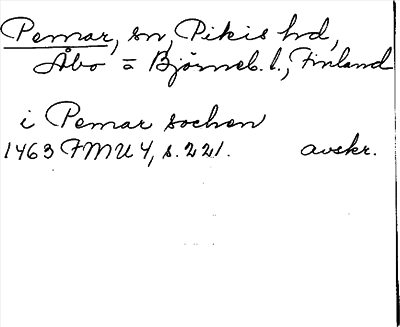 Pemar, sn, Pikis hd,
Åbo = Björneb. l., Finland
i Pemar sochen
1463 FMU 4, s. 221. avskr.